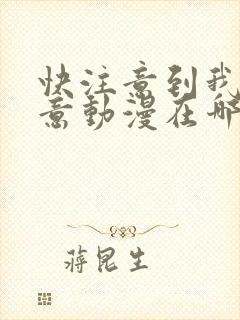 快注意到我
意動漫在哪
蔣昆生